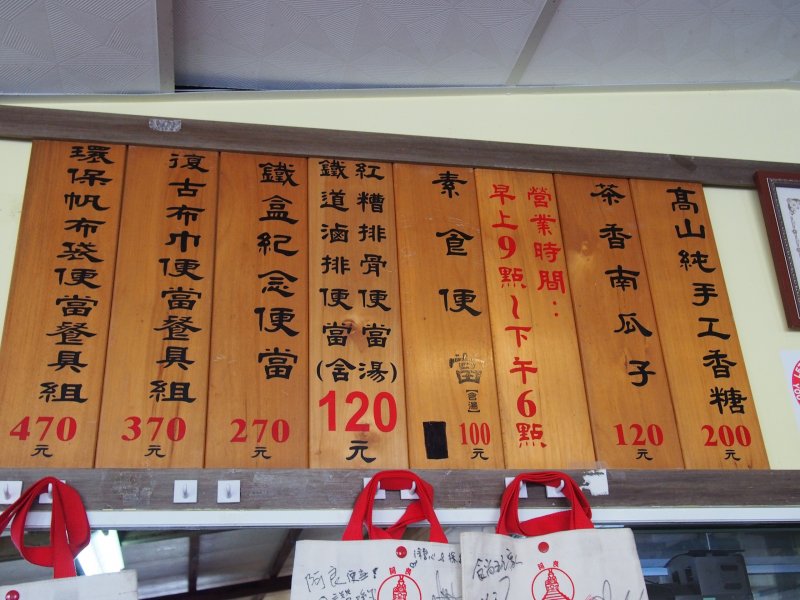 高山純手工香糖
200
元
茶香南瓜子
120
元
營業時間：
早上9點~下午6點
素食便當
[含湯]
100
元
紅糟排骨便當
鐵道滷排便當(含湯)
120
元
鐵盒紀念便當
270
元
復古布巾便當餐具組
370
元
環保帆布袋便當餐具組
470
元
阿良